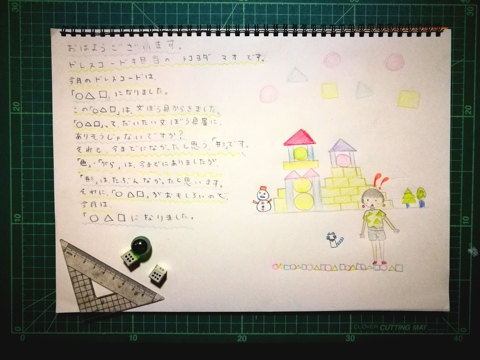 おはようございます。
ドレスコード担当の トコヨダ です。
今月のドレスコードは、
「○△□」になりました。
この「○△□」は、文ぼう具からきました。
「○△□」って、だいたい文ぼう具屋に、
ありそうじゃないですか？
それと、今までになかったと思う「形」です。
「色」・「がら」は、今までにありましたが、
「形」は、たぶんなかったと思います。
それに、「○△□」がおもしろいので
今月は、
「○△□」になりました。
CUTTING MAT
10
20
30
40